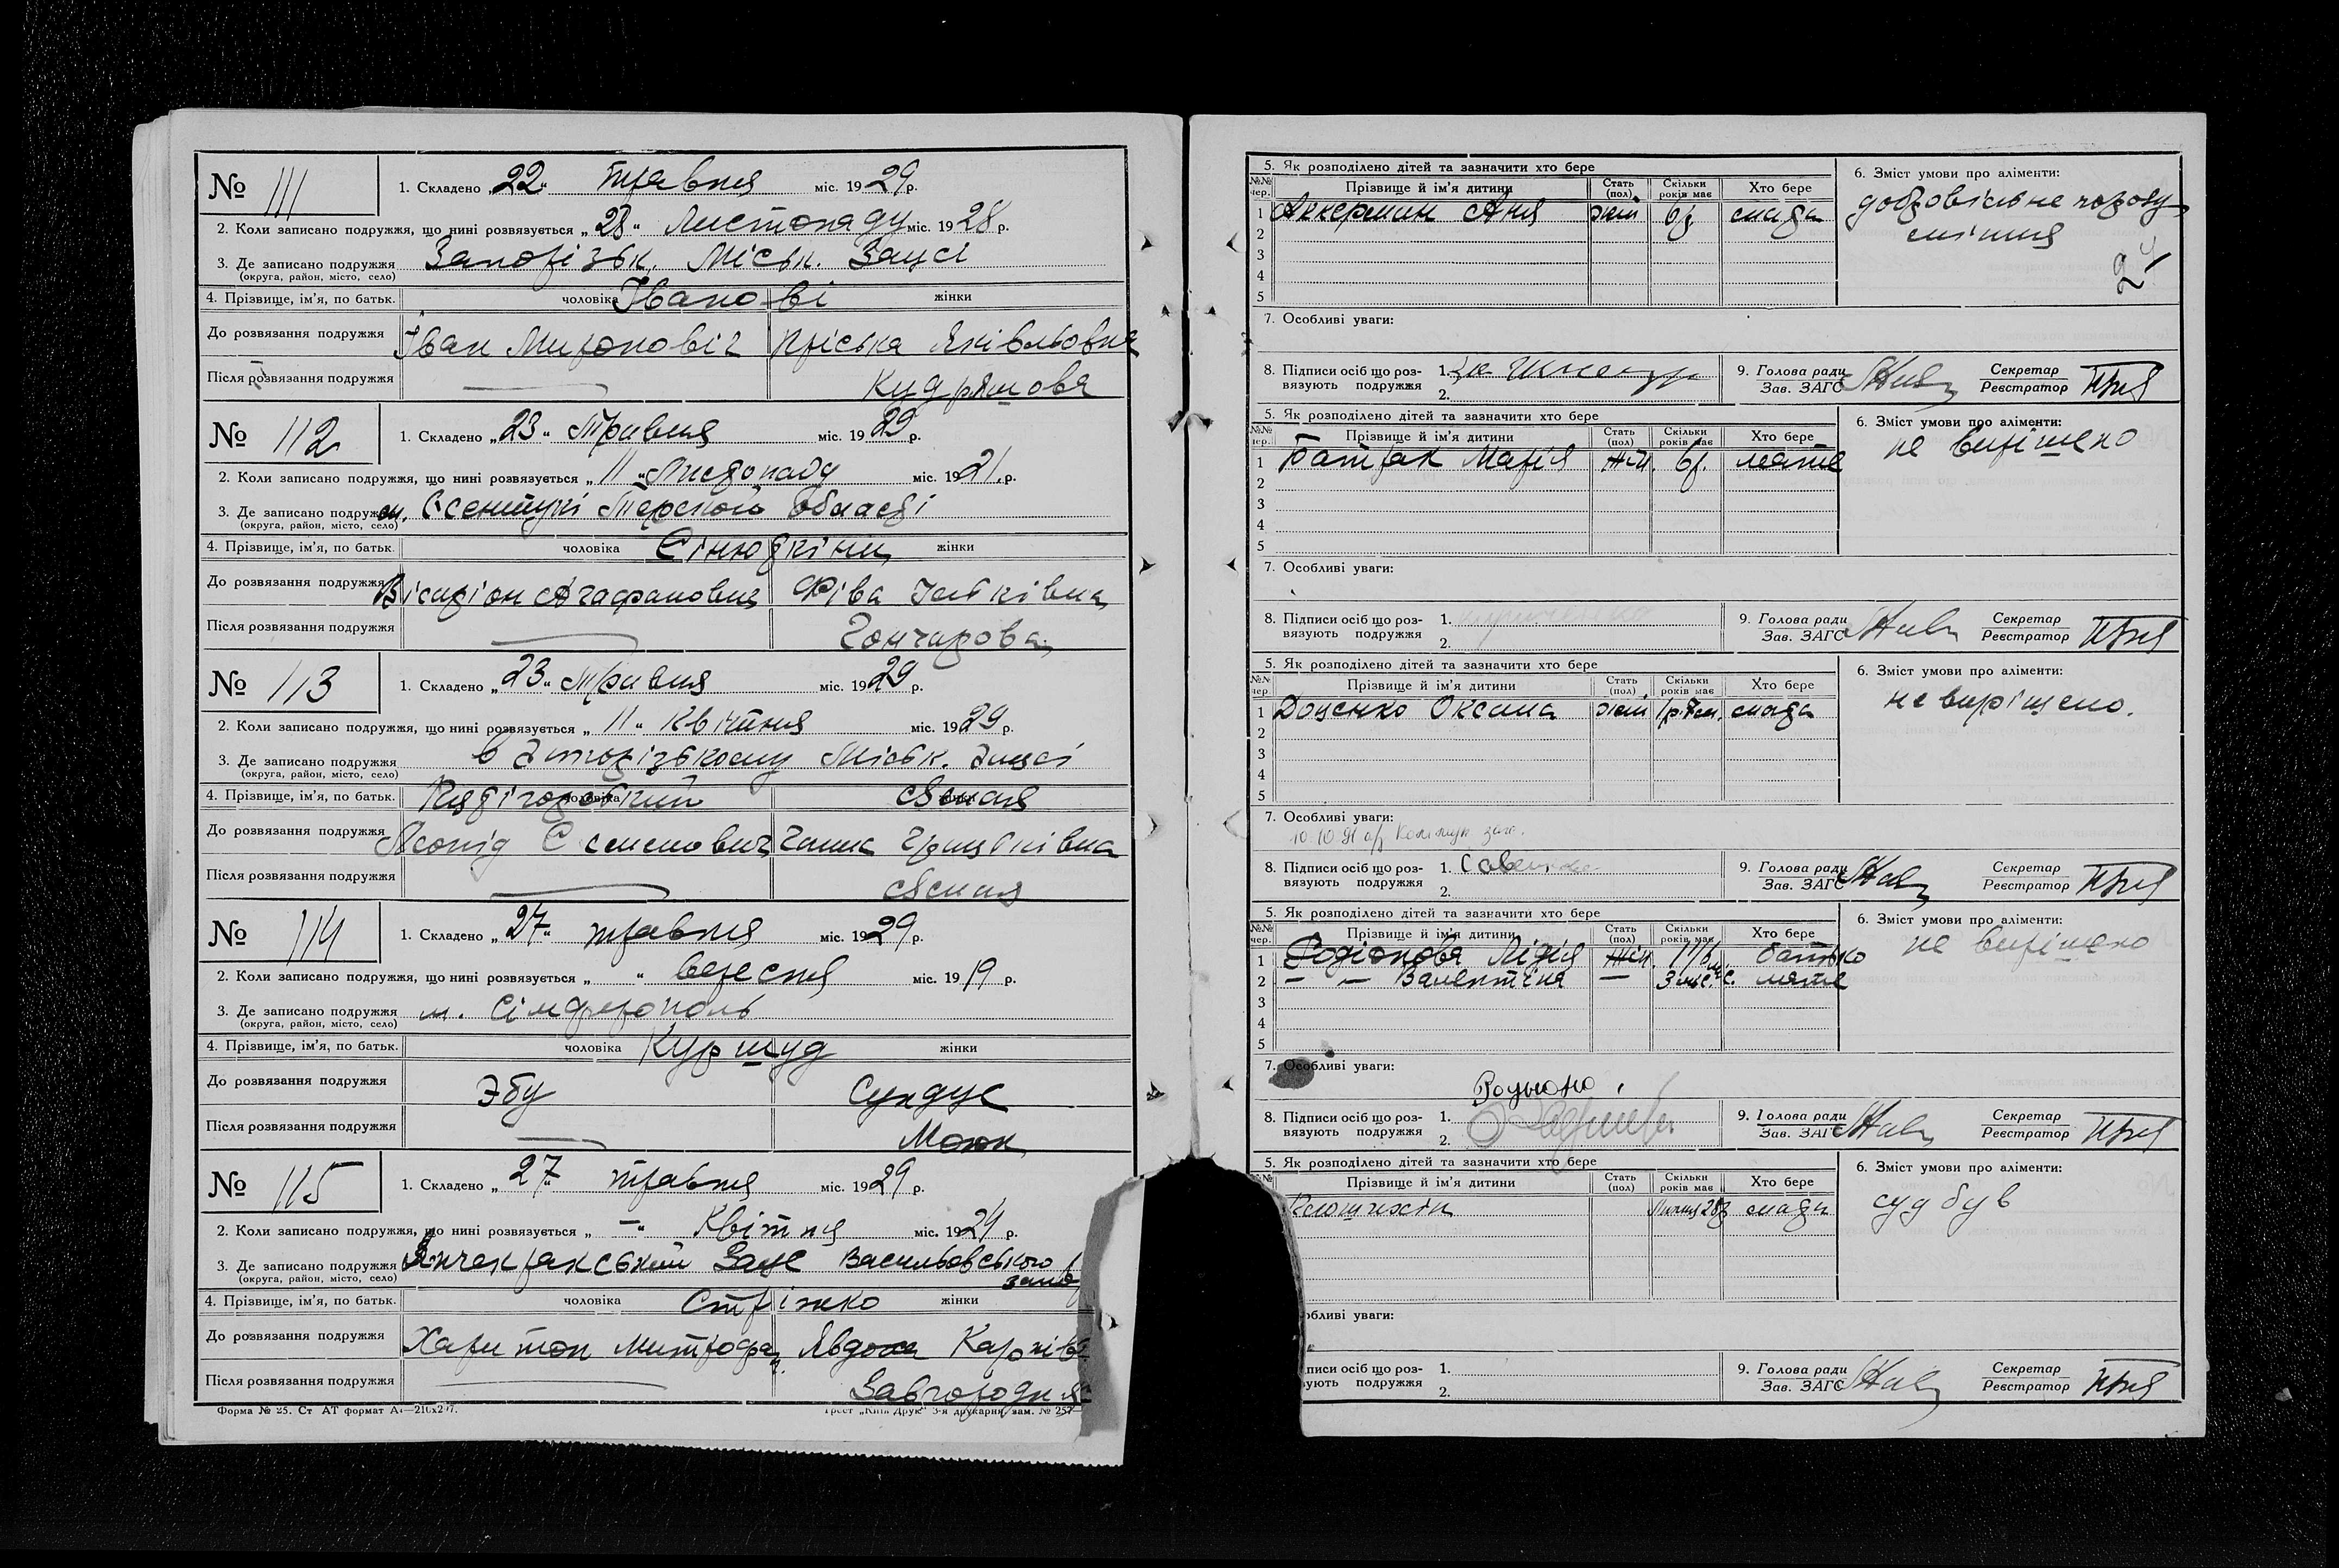 № 111
1. Складено „22“ травня міс. 1929 р.
2. Коли записано подружжя, що нині розвязується „28“ Листопаду міс. 1928 р.
3. Де записано подружжя Запорізьк. Міськ. Загсі
(округа, район, місто, село)
4. Прізвище, ім'я, по батьк. чоловіка Іванові жінки
До розвязання подружжя Іван Миронович Пріська Яківльовна
Після розвязання подружжя — Кудряшова
№ 112
1. Складено „23“ Травня міс. 1929 р.
2. Коли записано подружжя, що нині розвязується „11“ Листопаду міс. 1921 р.
3. Де записано подружжя ст. Єсентукі Терской Області
(округа, район, місто, село)
4. Прізвище, ім'я, по батьк. чоловіка Сінюткіни жінки
До розвязання подружжя Вісаріон Агафанович Фіва
Після розвязання подружжя — Гончарова
№ 113
1. Складено „23“ Травня міс. 1929 р.
2. Коли записано подружжя, що нині розвязується „11“ Квітня міс. 1929 р.
3. Де записано подружжя в Запорізькому Міськ. Загсі
(округа, район, місто, село)
4. Прізвище, ім'я, по батьк. чоловіка жінки Ясная
До розвязання подружжя Леонід Семенович Ганна Грицьківна
Після розвязання подружжя — Ясная
№ 114
1. Складено „27“ травня міс. 1929 р.
2. Коли записано подружжя, що нині розвязується „ “ вересня міс. 1919 р.
3. Де записано подружжя м. Сімферополь
(округа, район, місто, село)
4. Прізвище, ім'я, по батьк. чоловіка Куршуд жінки
До розвязання подружжя Эбу Сундус
Після розвязання подружжя —
№ 115
1. Складено „27“ травня міс. 1929 р.
2. Коли записано подружжя, що нині розвязується „—“ Квітня міс. 1924 р.
3. Де записано подружжя Янчекракський Загс Васильовського
(округа, район, місто, село)
4. Прізвище, ім'я, по батьк. чоловіка Стріжко жінки
До розвязання подружжя Харитон Митрофан. Явдоха Карпів
Після розвязання подружжя — Завгородня
Форма № 25. Ст АТ формат А4—210х297.
Трест „Київ Друк“ 3-я друкарня, зам. № 257—
5. Як розподілено дітей та зазначити хто бере
6. Зміст умови про аліменти:
№№ чер. Прізвище й ім'я дитини Стать (пол) Скільки років має Хто бере
1 Аккерман Аня жін 6р. мати
добровільне порозу
міння
2
3
4
5
7. Особливі уваги:
8. Підписи осіб що розвязують подружжя 1. 2.
9. Голова ради Зав. ЗАГС Секретар Реєстратор
5. Як розподілено дітей та зазначити хто бере
6. Зміст умови про аліменти:
№№ чер. Прізвище й ім'я дитини Стать (пол) Скільки років має Хто бере
не вирішено
1 Батрак Марія Жін. 6р. мати
2
3
4
5
7. Особливі уваги:
8. Підписи осіб що розвязують подружжя 1. 2.
9. Голова ради Зав. ЗАГС Секретар Реєстратор
5. Як розподілено дітей та зазначити хто бере
6. Зміст умови про аліменти:
№№ чер. Прізвище й ім'я дитини Стать (пол) Скільки років має Хто бере
1 Доценко Оксана жін 1р.7м. мати
не вирішено.
2
3
4
5
7. Особливі уваги:
8. Підписи осіб що розвязують подружжя 1. 2.
9. Голова ради Зав. ЗАГС Секретар Реєстратор
5. Як розподілено дітей та зазначити хто бере
6. Зміст умови про аліменти:
№№ чер. Прізвище й ім'я дитини Стать (пол) Скільки років має Хто бере
не вирішено
1 Родіонова Лідія Жін. батько
2 — — Валентіна — 3 міс. мати
3
4
5
7. Особливі уваги:
8. Підписи осіб що розвязують подружжя 1. 2.
9. Голова ради Зав. ЗАГС Секретар Реєстратор
5. Як розподілено дітей та зазначити хто бере
6. Зміст умови про аліменти:
Прізвище й ім'я дитини Стать (пол) Скільки років має Хто бере
суд був
мати
обливі уваги:
писи осіб що роз- 1.
уютъ подружжя 2.
9. Голова ради Зав. ЗАГС Секретар Реєстратор